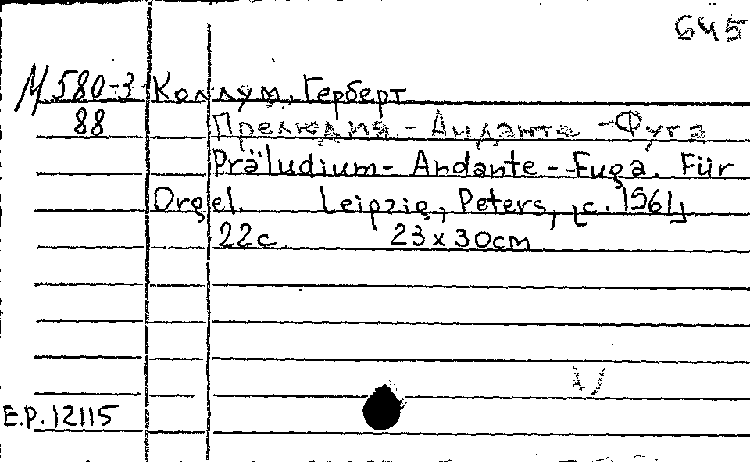 645
М 580-3 Коллум, Герберт
88 Прелюдия - Анданте - Фуга
Präludium - Andante - Fuga. Für
Orgel. Leipzig, Peters, [c. 1964]
22с. 23 x 30cm
E.P. 12115